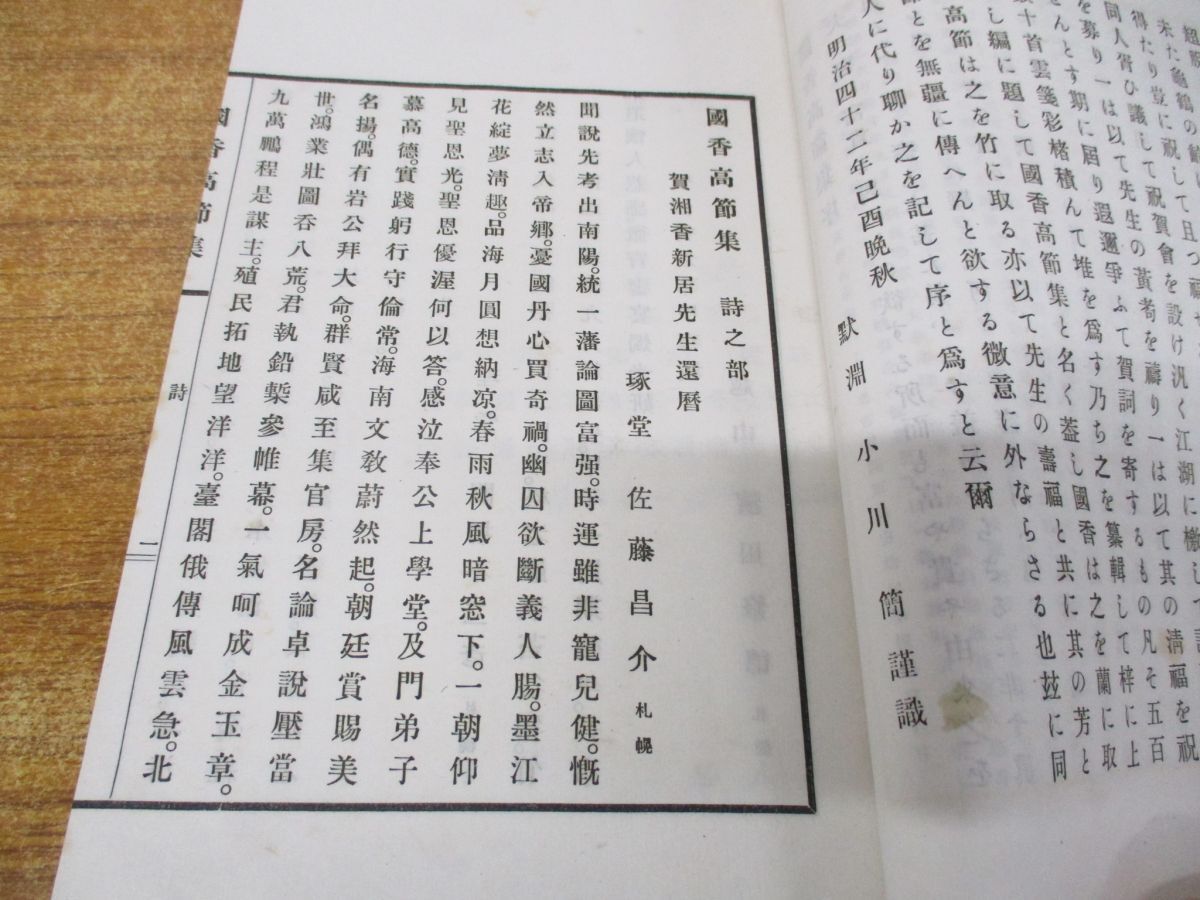 未た龜鶴の
得たり堂に祝して祝賀會を設け汎く江湖に檄して
同人胥ひ議して先生の黃耇を禱り一は以て其の淸福を祝
を募り一は以て先生の賀詞を寄するもの凡そ五百
せんとす期に屆り遐邇爭ふて之を纂輯して梓に上
十首雲箋彩楮積んて堆を爲す乃ち之を蘭に取
し編に題して國香高節集と名く葢し國香は之を蘭に取
高節は之を竹に取る亦以て先生の壽福と共に其の芳と
とを無疆に傳へんと欲する微意に外ならさる也玆に同
人に代り聊か之を記して序と爲すと云爾
明治四十二年己酉晚秋 默淵 小川 簡謹識
國香高節集 詩之部
賀湘香新居先生還曆
琢堂 佐藤昌介 札幌
聞說先考出南陽。統一藩論圖富强。時運雖非寵兒健。慨
然立志入帝鄕。憂國丹心買奇禍。幽囚欲斷義人腸。墨江
花綻夢淸趣。品海月圓想納凉。春雨秋風暗窓下。一朝仰
見聖恩光。聖恩優渥何以答。感泣奉公上學堂。及門弟子
慕高德。實踐躬行守倫常。海南文敎蔚然起。朝廷賞賜美
名揚。偶有岩公拜大命。群賢咸至集官房。名論卓說壓當
世。鴻業壯圖呑八荒。君執鉛槧參帷幕。一氣呵成金玉章。
九萬鵬程是謀主。殖民拓地望洋洋。臺閣俄傳風雲急。北
國香高節集
詩
一